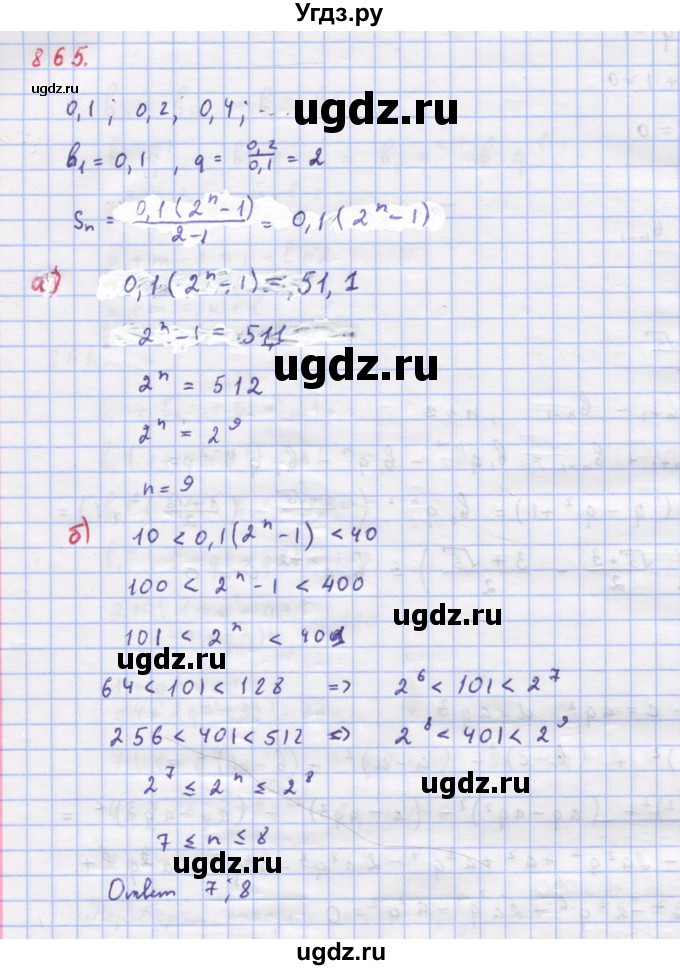 Угдз.ру
865.
ugdz.ru
0,1; 0,2; 0,4; ...
ugdz.ru
b₁ = 0,1 , q = 0,2/0,1 = 2
Sₙ = 0,1(2ⁿ-1)/2-1 = 0,1(2ⁿ-1)
а) 0,1(2ⁿ-1) = 51,1
2ⁿ-1 = 511
ugdz.ru
2ⁿ = 512
2ⁿ = 2⁹
n = 9
б) 10 < 0,1(2ⁿ-1) < 40
100 < 2ⁿ-1 < 400
ugdz.ru
101 < 2ⁿ < 401
ugdz.ru
64 < 101 < 128 => 2⁶ < 101 < 2⁷
256 < 401 < 512 => 2⁸ < 401 < 2⁹
2⁷ ≤ 2ⁿ ≤ 2⁸
ugdz.ru
7 ≤ n ≤ 8
ugdz.ru
Ответ 7; 8
ugdz.ru